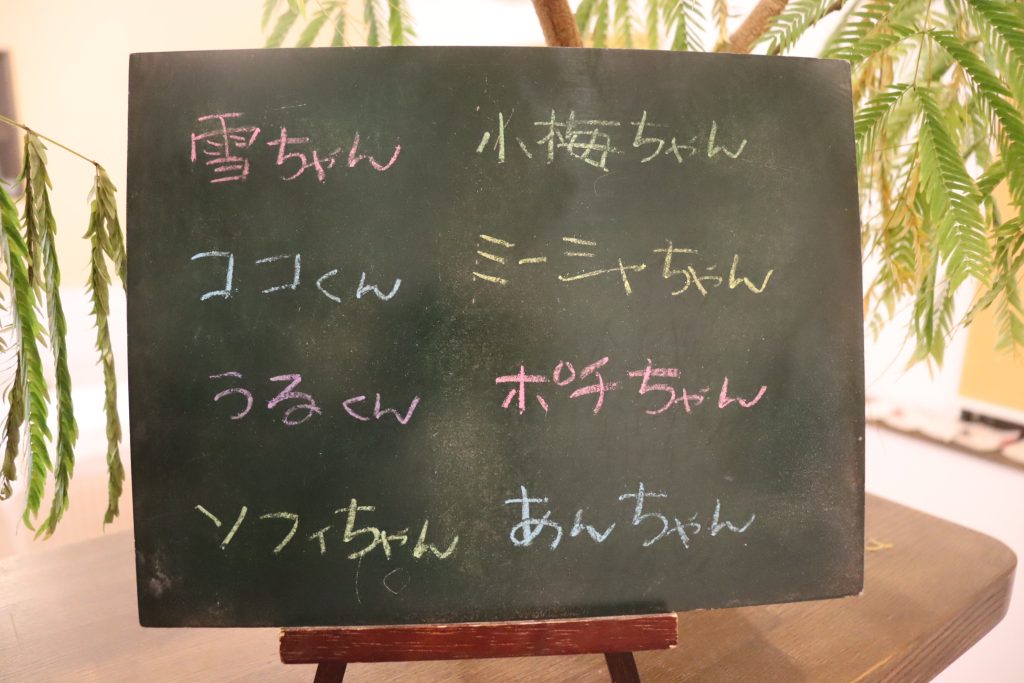 雪ちゃん
小梅ちゃん
ココくん
ミーシャちゃん
うるくん
ポチちゃん
ソフィちゃん
あんちゃん